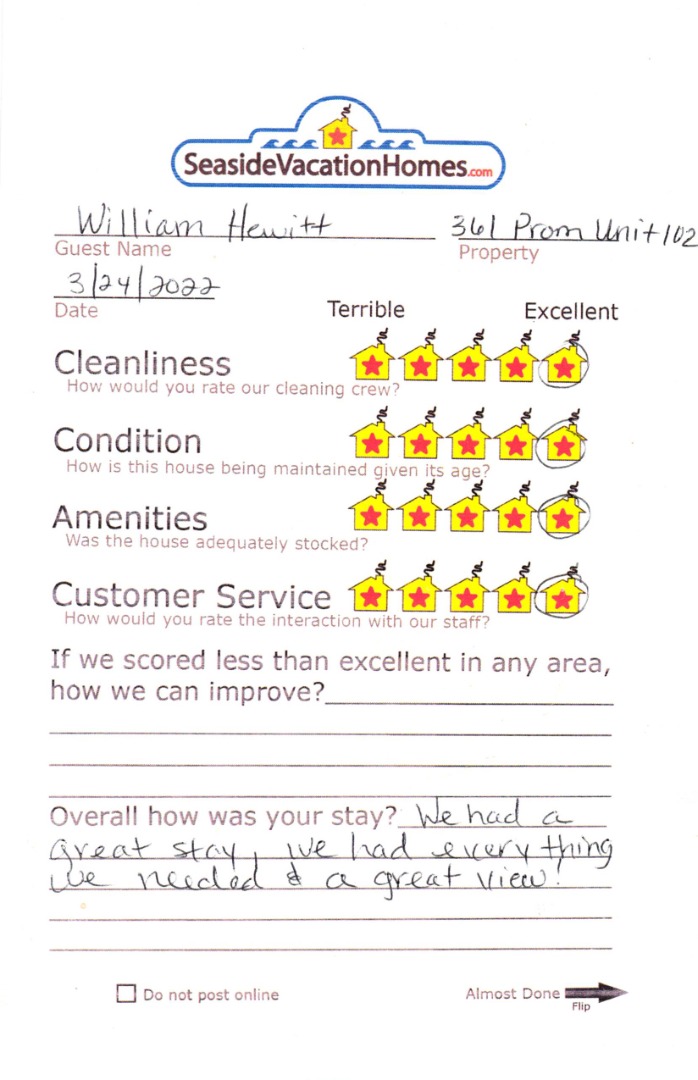 SeasideVacationHomes.com
William Hewitt 361 Prom Unit 102
Guest Name Property
3/24/2022
Date Terrible Excellent
Cleanliness
How would you rate our cleaning crew?
Condition
How is this house being maintained given its age?
Amenities
Was the house adequately stocked?
Customer Service
How would you rate the interaction with our staff?
If we scored less than excellent in any area,
how we can improve?
Overall how was your stay? We had a
great stay, we had every thing
we needed & a great view!
Do not post online Almost Done
Flip